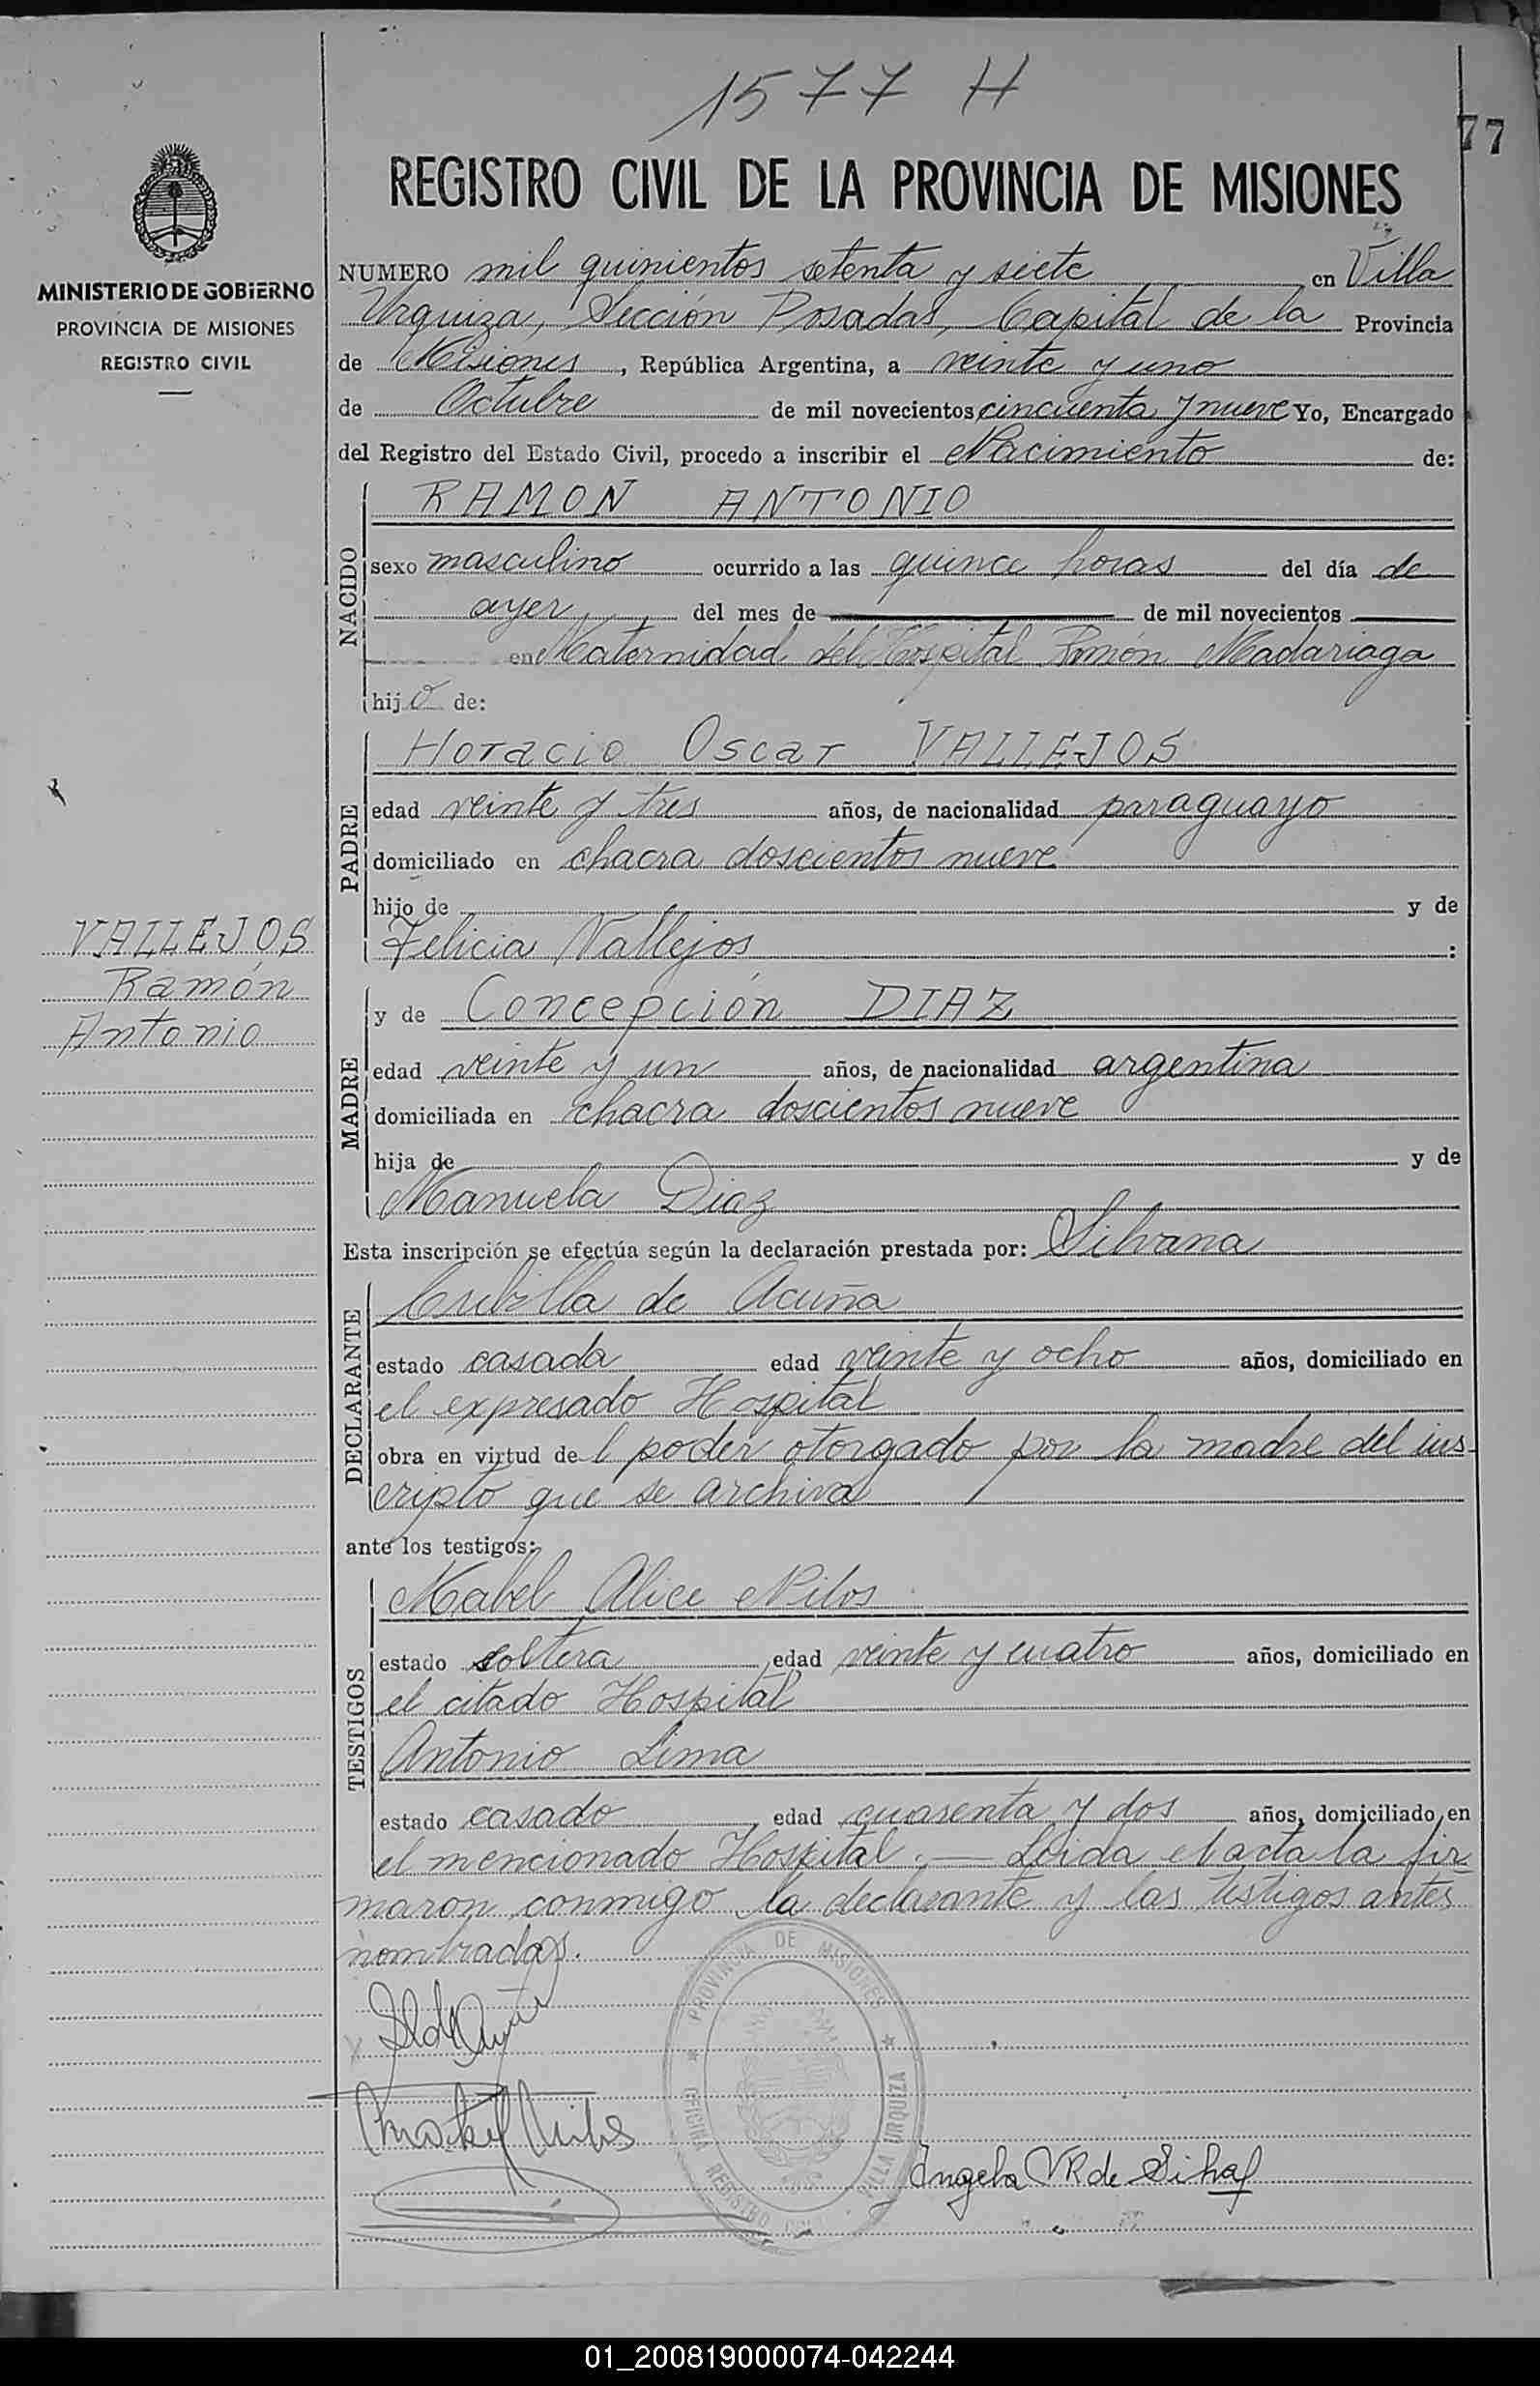 1577 H
77
REGISTRO CIVIL DE LA PROVINCIA DE MISIONES
MINISTERIO DE GOBIERNO
PROVINCIA DE MISIONES
REGISTRO CIVIL
NUMERO mil quinientos setenta y siete en Villa
Urquiza, Sección Posadas, Capital de la Provincia
de Misiones, República Argentina, a veinte y uno
de Octubre de mil novecientos cincuenta y nueve Yo, Encargado
del Registro del Estado Civil, procedo a inscribir el Nacimiento de:
NACIDO
RAMON ANTONIO
sexo masculino ocurrido a las quince horas del día de
ayer del mes de de mil novecientos
en Maternidad del Hospital Ramón Madariaga
hijo de:
PADRE
Horacio Oscar VALLEJOS
edad veinte y tres años, de nacionalidad paraguayo
domiciliado en chacra doscientos nueve
hijo de y de
Felicia Vallejos :
VALLEJOS
Ramón
Antonio
MADRE
y de Concepción DIAZ
edad veinte y un años, de nacionalidad argentina
domiciliada en chacra doscientos nueve
hija de y de
Manuela Diaz
Esta inscripción se efectúa según la declaración prestada por: Silvana
DECLARANTE
Cubilla de Acuña
estado casada edad veinte y ocho años, domiciliado en
el expresado Hospital
obra en virtud de l poder otorgado por la madre del ins-
cripto que se archiva
ante los testigos:
TESTIGOS
Mabel Alice Nilos
estado soltera edad veinte y cuatro años, domiciliado en
el citado Hospital
Antonio Lima
estado casado edad cuarenta y dos años, domiciliado en
el mencionado Hospital.— Leida el acta la fir-
maron conmigo la declarante y los testigos antes
nombrados.
PROVINCIA DE MISIONES
OFICINA REGISTRO CIVIL VILLA URQUIZA
Angela VR de Silva
01_200819000074-042244